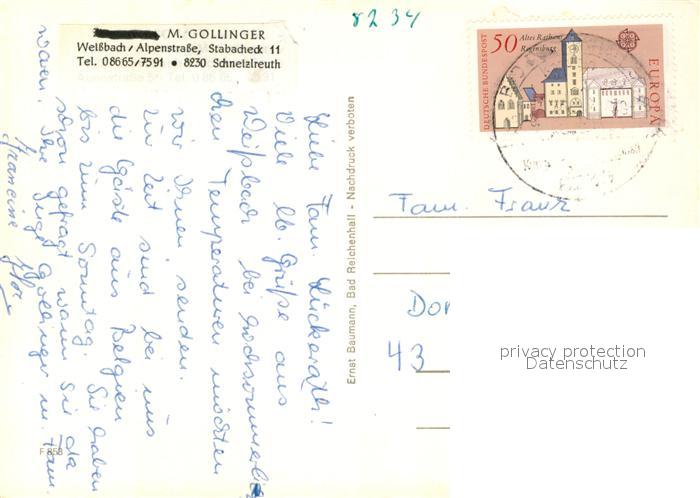 8234
M. GOLLINGER
Weißbach/Alpenstraße, Stabacheck 11
Tel. 08665/7591 • 8230 Schneizlreuth
DEUTSCHE BUNDESPOST
50
Altes Rathaus
Regensburg
EUROPA
Liebe Fam. Lückerath!
Viele lb. Grüße aus
Weißbach bei hochsommerli
chen Temperaturen möchten
wir Ihnen senden.
Zur Zeit sind bei uns
die Gäste aus Belgien
bis zum Sonntag. Sie haben
schon gefragt wann Sie da
waren. Ihre Inge Gollinger m. Fam.
Francine
Ernst Baumann, Bad Reichenhall - Nachdruck verboten
F 858
Fam. Franz
Dor
43
privacy protection
Datenschutz